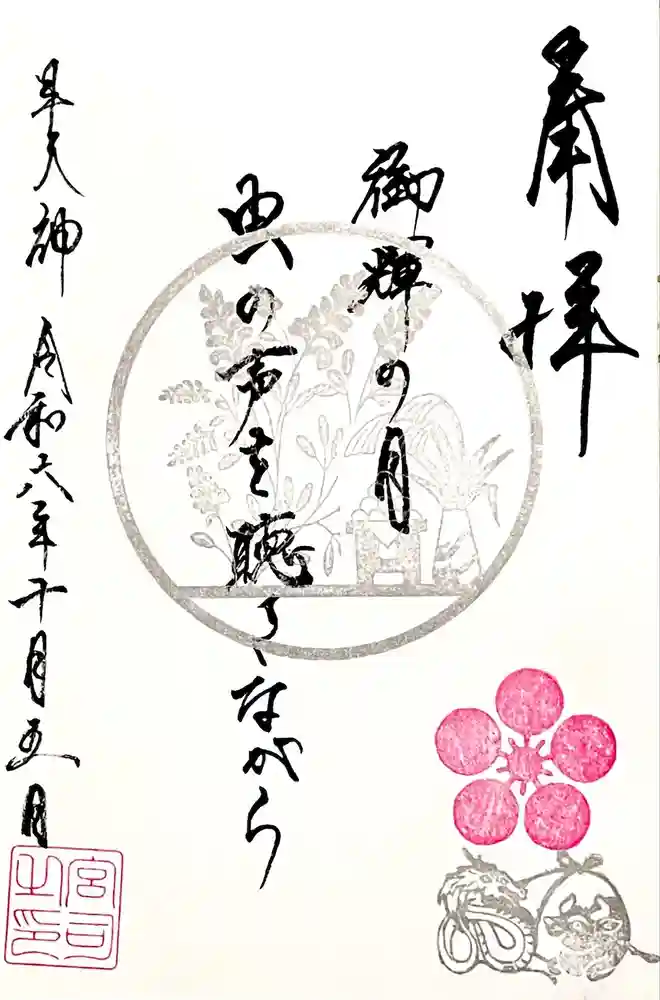 奉拝
御輝の月
虫の声を聴きながら
天神 令和六年十月五日
宮司
之印